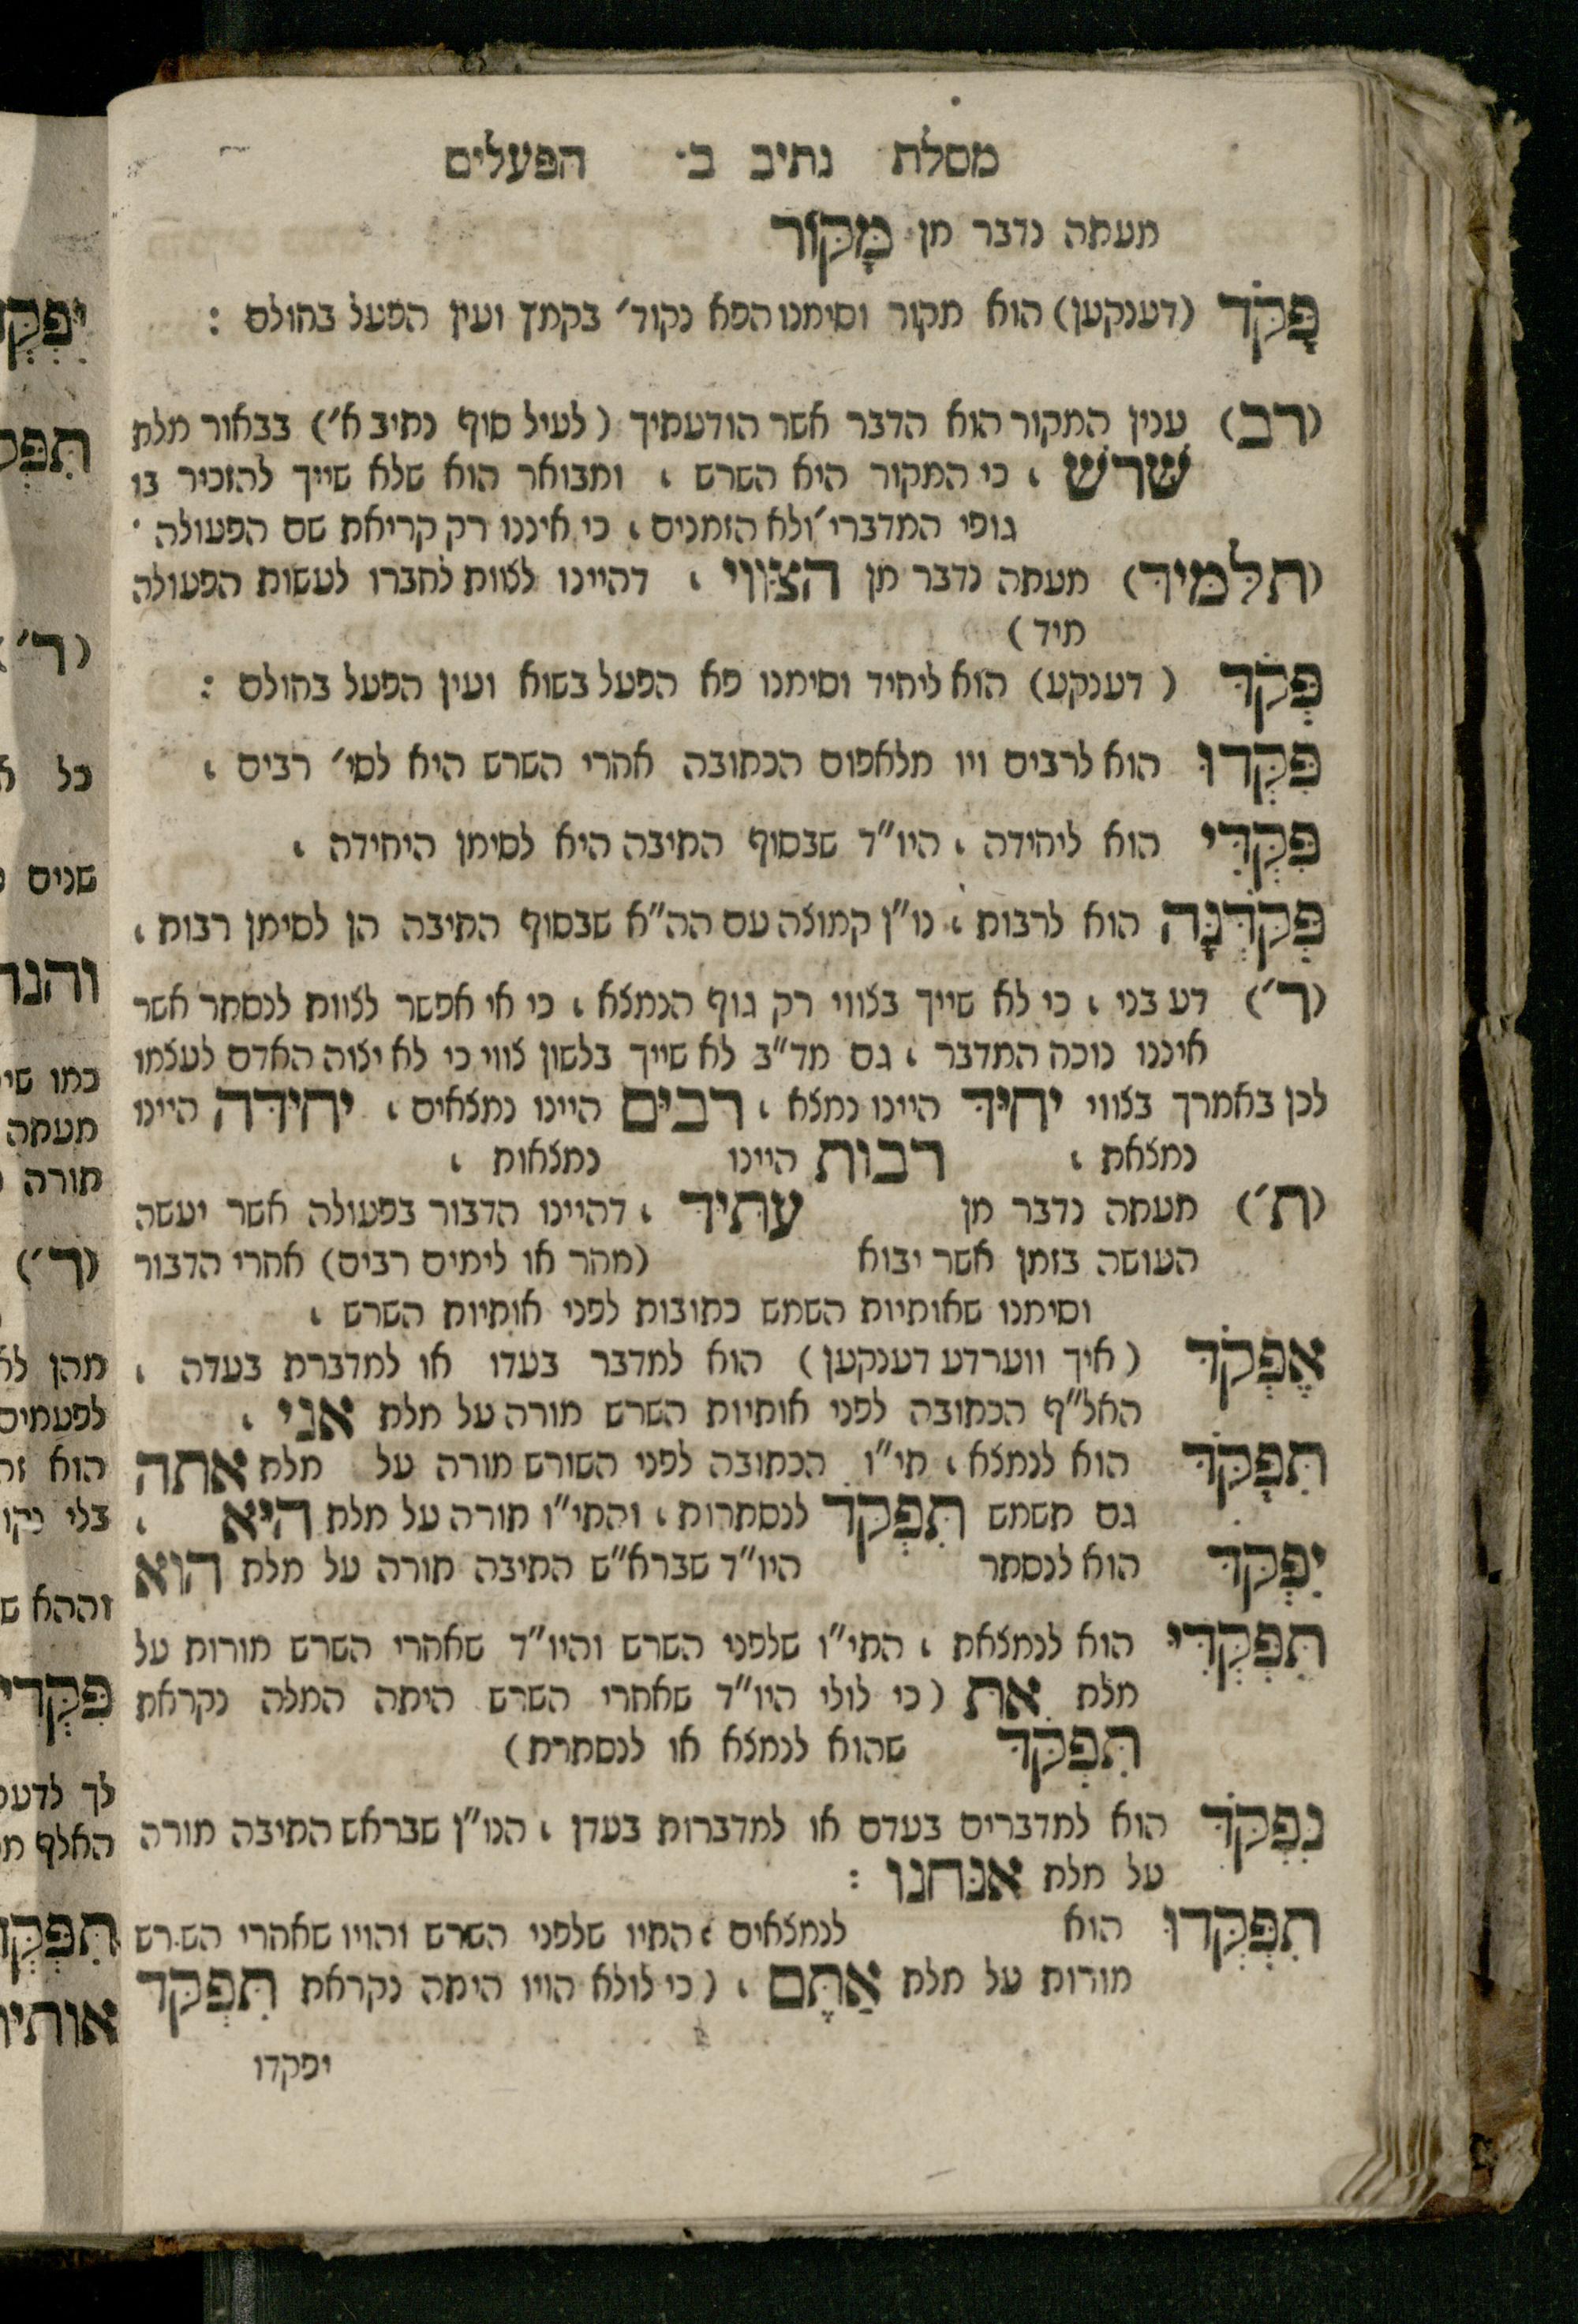 מסלת נתיב ב׳ הפעלים
מעתה נדבר מן מָקוֹר
פָּקֹד (דענקען) הוא מקור וסימנו הפא נקוד׳ בקמץ ועין הפעל בחולם :
(רב) ענין המקור הוא הדבר אשר הודעתיך (לעיל סוף נתיב א׳) בבאור מלת
שֹׁרֶשׁ , כי המקור היא השרש , ומבואר הוא שלא שייך להזכיר בו
גופי המדברי׳ ולא הזמנים , כי איננו רק קריאת שם הפעולה .
(תלמיד) מעתה נדבר מן הצווי , דהיינו לצוות לחברו לעשות הפעולה
מיד)
פְּקֹד (דענקע) הוא ליחיד וסימנו פא הפעל בשוא ועין הפעל בחולם :
פִּקְדוּ הוא לרבים ויו מלאפום הכתובה אחרי השרש היא לסי׳ רבים ,
פִּקְדִי הוא ליחידה , היו״ד שבסוף התיבה היא לסימן היחידה ,
פְּקֹדְנָה הוא לרבות , נו״ן קמוצה עם הה״א שבסוף התיבה הן לסימן רבות ,
(ר׳) דע בני , כי לא שייך בצווי רק גוף הנמצא , כי אי אפשר לצוות לנסתר אשר
איננו נוכח המדבר , גם מד״ב לא שייך בלשון צווי כי לא יצוה האדם לעצמו
לכן באמרך בצווי יחיד היינו נמצא , רבים היינו נמצאים , יחידה היינו
נמצאת , רבות היינו נמצאות ,
(ת׳) מעתה נדבר מן עתיד , דהיינו הדבור בפעולה אשר יעשה
העושה בזמן אשר יבוא (מהר או לימים רבים) אחרי הדבור
וסימנו שאותיות השמש כתובות לפני אותיות השרש ,
אֶפְקֹד (איך ווערדע דענקען) הוא למדבר בעדו או למדברת בעדה ,
האל״ף הכתובה לפני אותיות השרש מורה על מלת אני ,
תִּפְקֹד הוא לנמצא , תי״ו הכתובה לפני השורש מורה על מלת אתה
גם משמש תִּפְקֹד לנסתרות , והתי״ו מורה על מלת היא ,
יִפְקֹד הוא לנסתר היו״ד שברא״ש התיבה מורה על מלת הוא
תִּפְקְדִי הוא לנמצאת , התי״ו שלפני השרש והיו״ד שאחרי השרש מורות על
מלת את (כי לולי היו״ד שאחרי השרש היתה המלה נקראת
תִּפְקֹד שהוא לנמצא או לנסתרת)
נִפְקֹד הוא למדברים בעדם או למדברות בעדן , הנו״ן שבראש התיבה מורה
על מלת אנחנו :
תִּפְקְדוּ הוא לנמצאים , התיו שלפני השרש והויו שאחרי השרש
מורות על מלת אַתֶּם , (כי לולא הויו היתה נקראת תִּפְקֹד
יפקדו